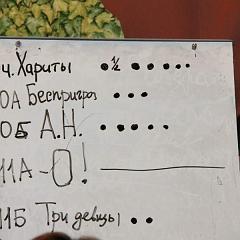 ч. Хариты • 1/2 • • • • •
0А Беспригрз • • •
0Б А.Н. • • • • •
11А - О! ————
11Б Три девицы • •